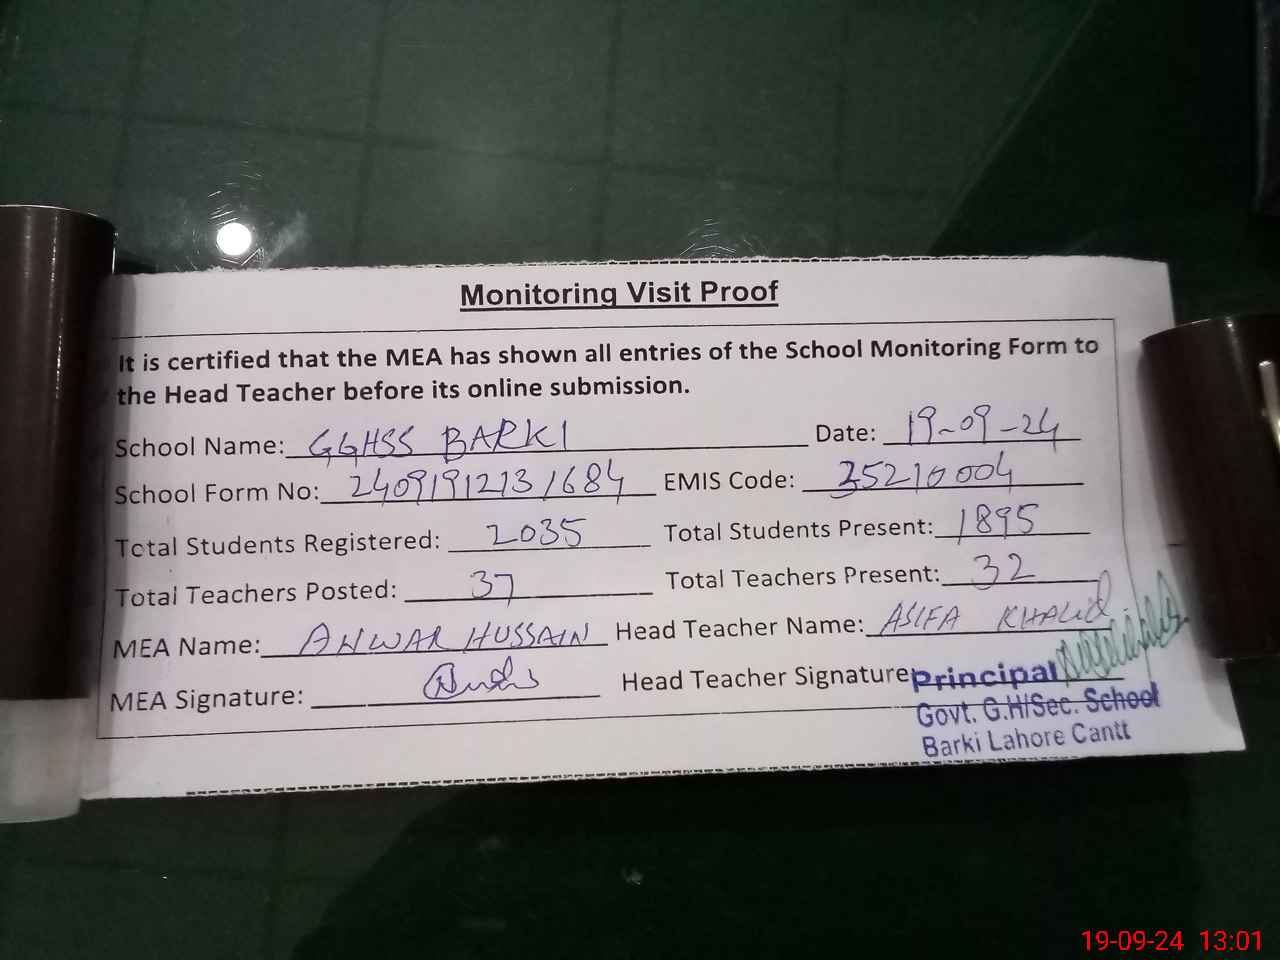 Monitoring Visit Proof
It is certified that the MEA has shown all entries of the School Monitoring Form to
the Head Teacher before its online submission.
School Name: GGHSS BARKI Date: 19-09-24
School Form No: 24091912131684 EMIS Code: 35210004
Total Students Registered: 2035 Total Students Present: 1895
Total Teachers Posted: 37 Total Teachers Present: 32
MEA Name: ANWAR HUSSAIN Head Teacher Name: ASIFA KHALID
MEA Signature: Head Teacher Signature
Principal
Govt. G.H/Sec. School
Barki Lahore Cantt
19-09-24 13:01